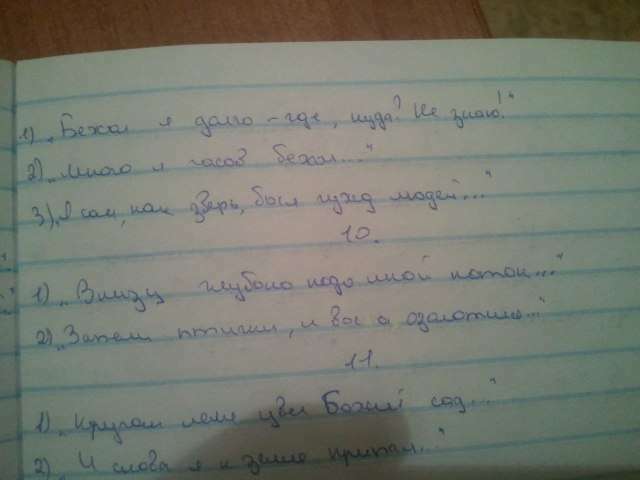 1) „Бежал я долго – где, куда? Не знаю!"
2) „Много я часов бежал..."
3) „Я сам, как зверь, был чужд людей..."
10.
1) „Внизу глубоко подо мной поток..."
2) „Запели птички, и восток озолотился..."
11.
1) „Кругом меня цвел Божий сад..."
2) „И снова я к земле припал..."